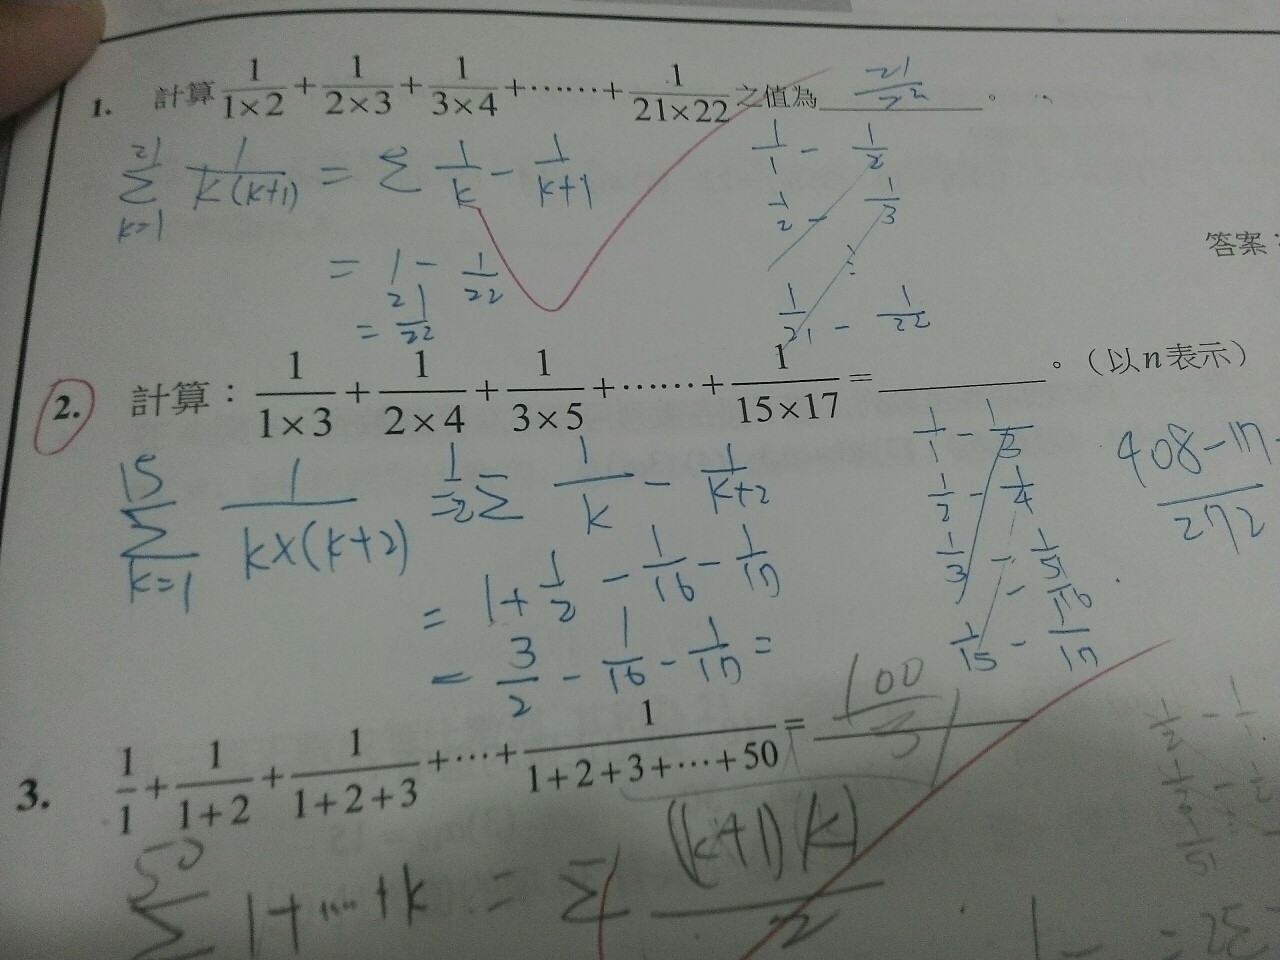 1. 計算 1/1×2 + 1/2×3 + 1/3×4 +……+ 1/21×22 之值為 21/22 。
21 Σ k=1 1/k(k+1) = Σ 1/k − 1/k+1
1/1 − 1/2
1/2 − 1/3
⋮
1/21 − 1/22
= 1 − 1/22
= 21/22
答案:
2. 計算: 1/1×3 + 1/2×4 + 1/3×5 +……+ 1/15×17 = 。(以n表示)
15 Σ k=1 1/k×(k+2) = 1/2 Σ 1/k − 1/k+2
= 1 + 1/2 − 1/16 − 1/17
= 3/2 − 1/16 − 1/17 =
1/1 − 1/3
1/2 − 1/4
1/3 − 1/5
− 1/16
1/15 − 1/17
408−17−
272
3. 1/1 + 1/1+2 + 1/1+2+3 +⋯+ 1/1+2+3+⋯+50 = 100/
50 Σ 1+⋯+k = Σ (k+1)(k)/2